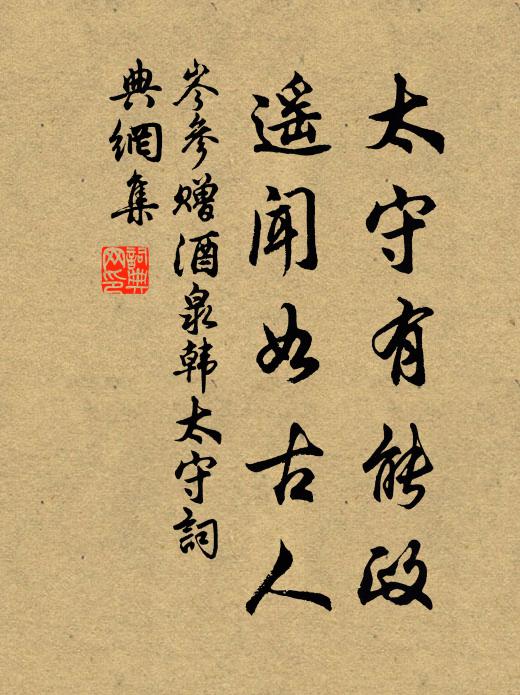 太守有能政
遥闻如古人
岑参赠酒泉韩太守詞
典網集
詞典
网印